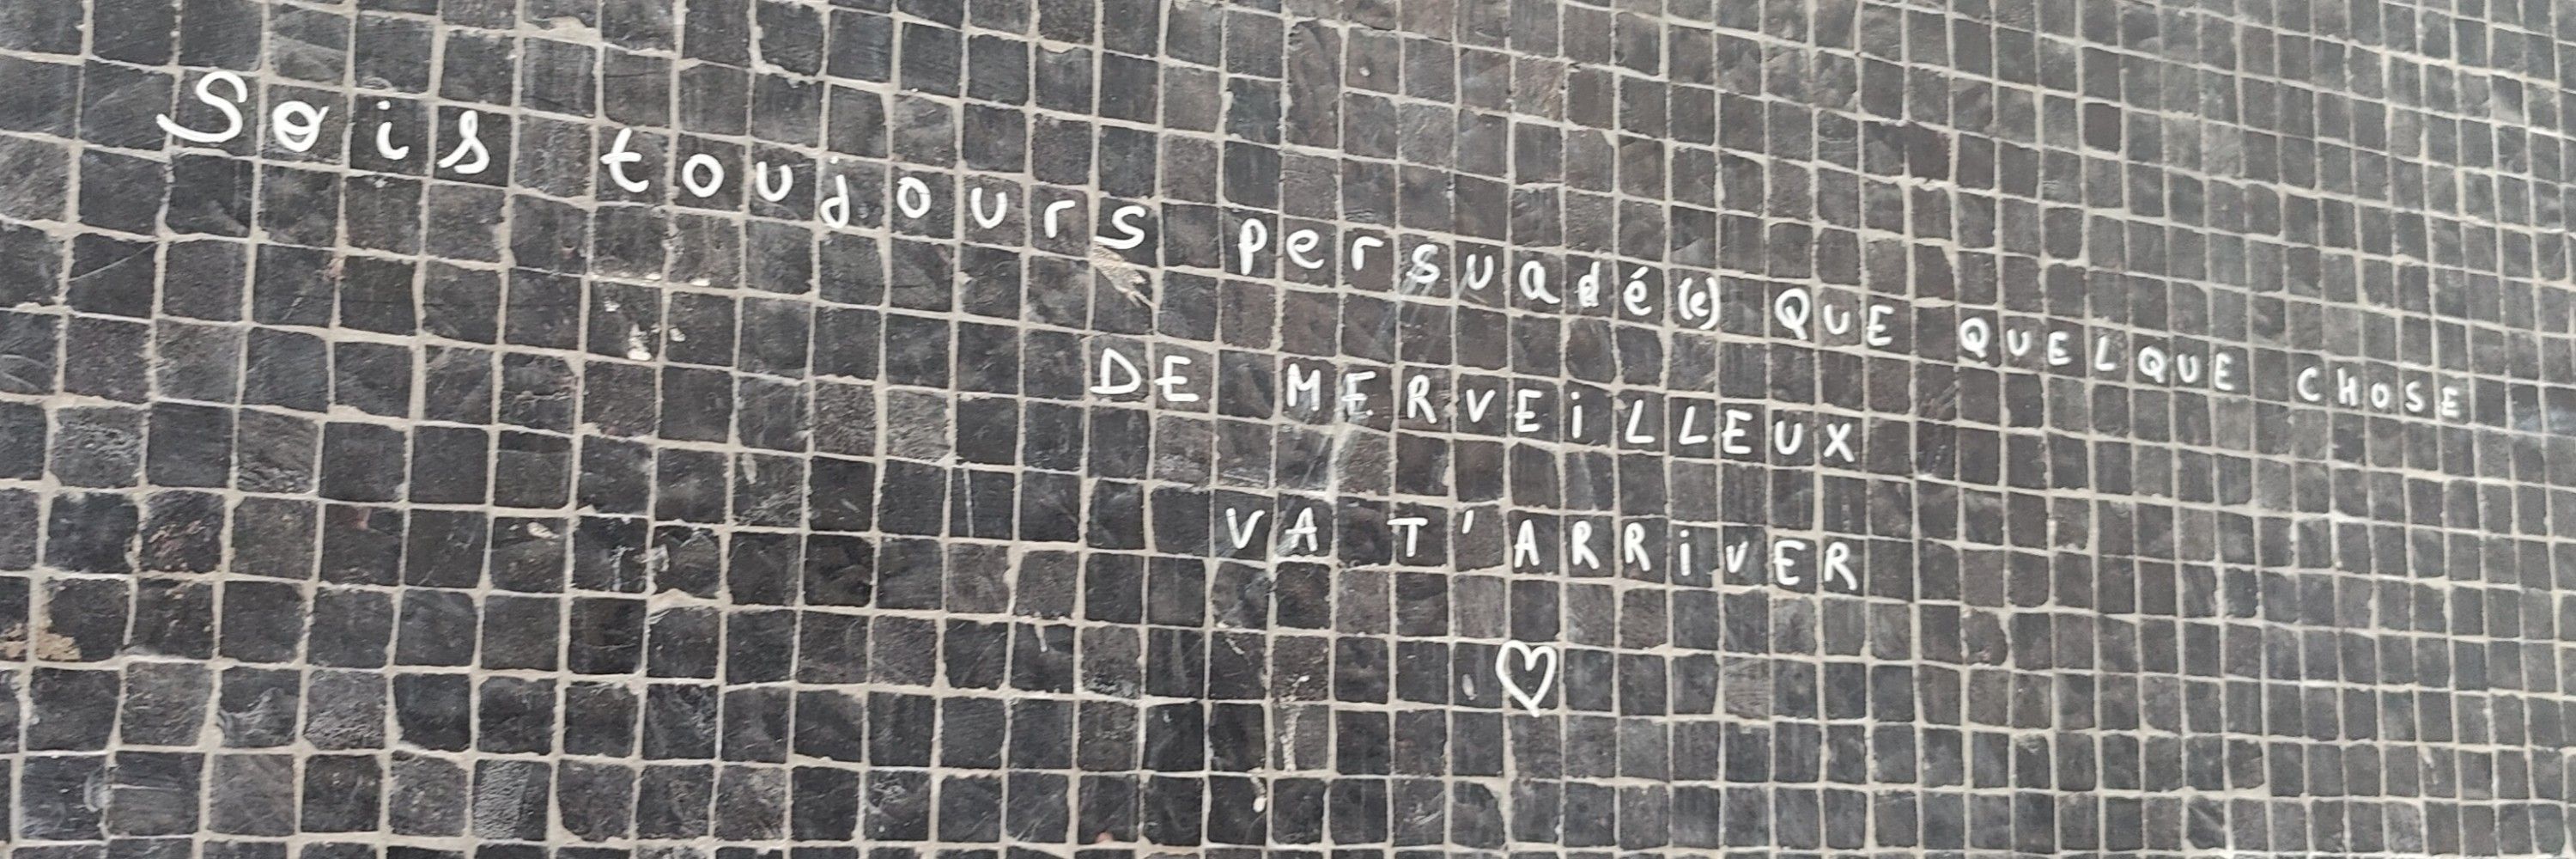 Sois toujours persuadé(e) QUE QUELQUE CHOSE
DE MERVEiLLEUX
VA T'ARRiVER